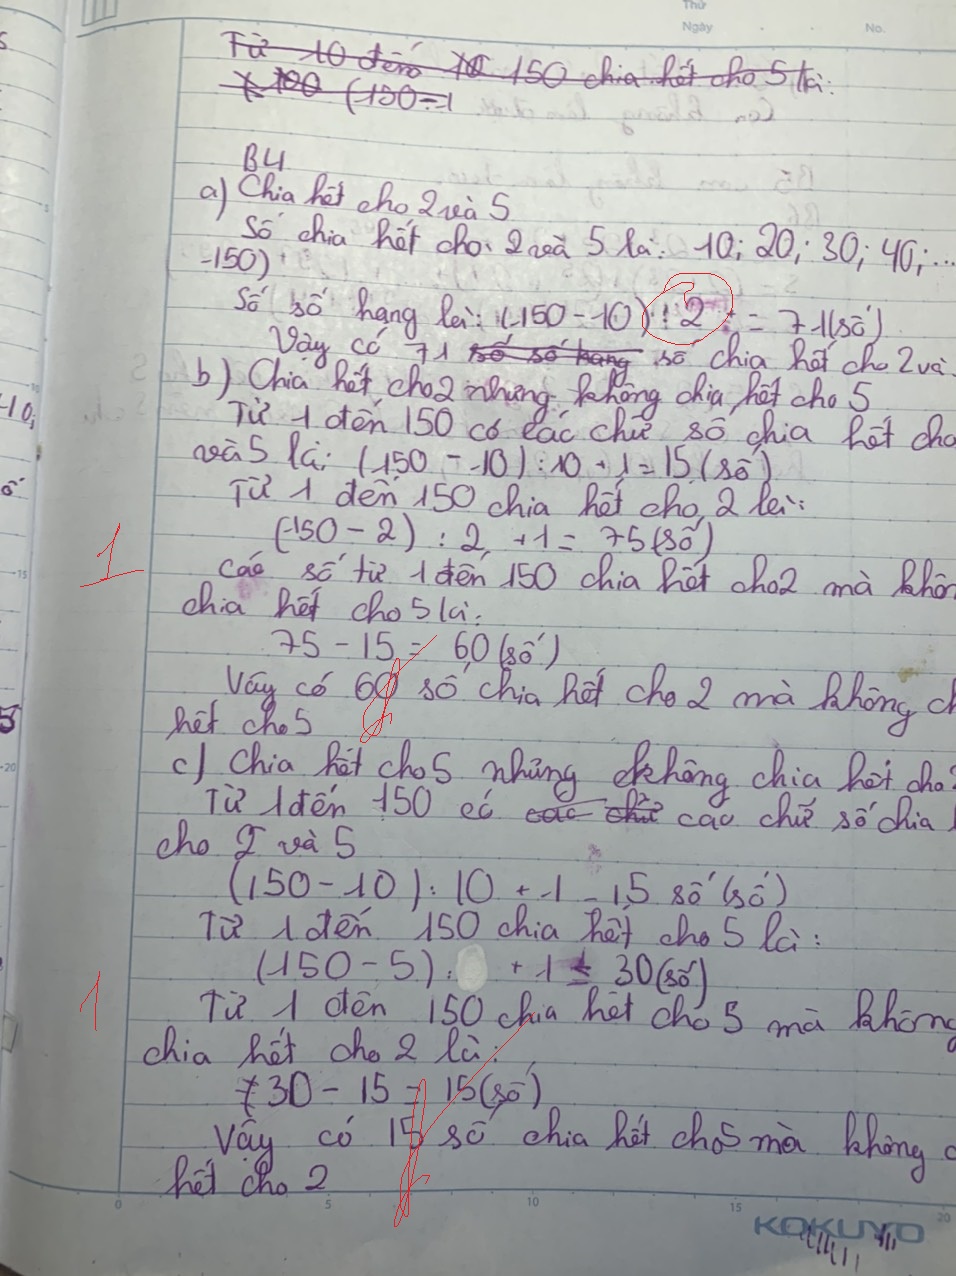 Thứ
Ngày No.
Từ 10 đến 10 150 chia hết cho 5 là:
(150-1
B4
a) Chia hết cho 2 và 5
Số chia hết cho 2 và 5 là: 10; 20; 30; 40; ...
150)
Số số hạng là: (150-10) : 2 + = 71(số)
Vậy có 71 số số hạng số chia hết cho 2 và
b) Chia hết cho 2 nhưng không chia hết cho 5
Từ 1 đến 150 có các chữ số chia hết cho
và 5 là: (150 - 10) : 10 + 1 = 15 (số)
Từ 1 đến 150 chia hết cho 2 là:
(150 - 2) : 2 + 1 = 75 (số)
1
các số từ 1 đến 150 chia hết cho 2 mà khôn
chia hết cho 5 là:
75 - 15 = 60 (số)
Vậy có 60 số chia hết cho 2 mà không ch
hết cho 5
c) Chia hết cho 5 nhưng không chia hết cho
Từ 1 đến 150 có các chữ các chữ số chia
cho 2 và 5
(150-10) : 10 + 1 = 15 số (số)
Từ 1 đến 150 chia hết cho 5 là:
(150 - 5) : + 1 = 30 (số)
1
Từ 1 đến 150 chia hết cho 5 mà không
chia hết cho 2 là:
30 - 15 = 15 (số)
Vậy có 15 số chia hết cho 5 mà không c
hết cho 2
0 5 10 15 20
KOKUYO